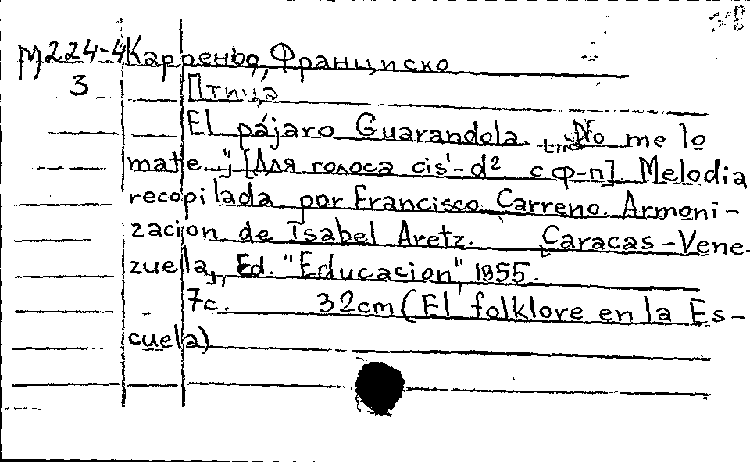 М224-4 Карреньо, Франциско
3 Птица
El pájaro Guarandola. „No me lo
mate..." [Для голоса cis¹-d² с ф-п]. Melodia
recopilada por Francisco Carreno. Armoni-
zacion de Isabel Aretz. Caracas-Vene-
zuella, Ed. "Educacion", 1955.
7с. 32cm (El folklore en la Es-
cuela)